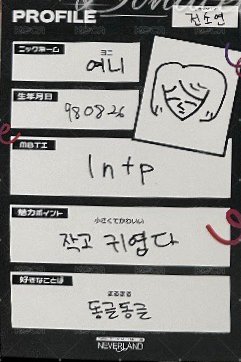 PROFILE
전소연
ニックネーム
ヨニ
여니
生年月日
980826
MBTI
Intp
魅力ポイント
小さくてかわいい
작고 귀엽다
好きなことば
まるまる
동글동글
NEVERLAND